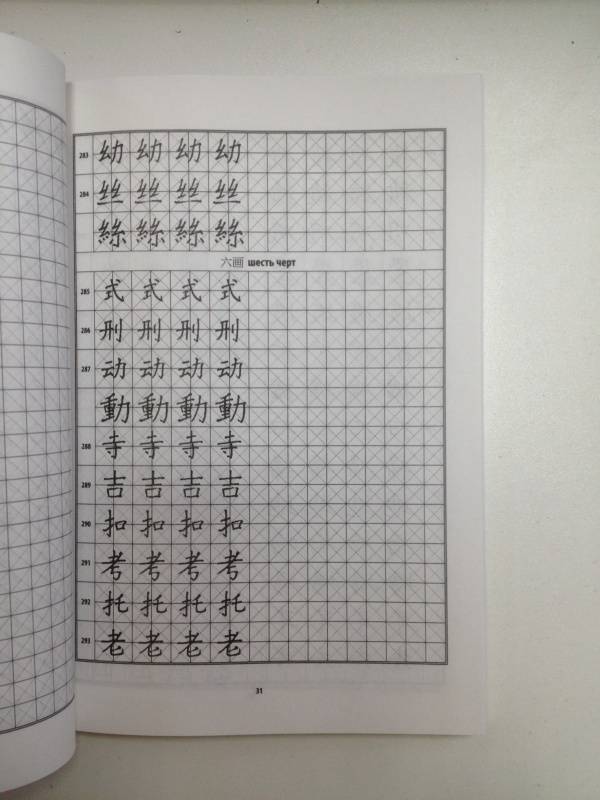 283 幼 幼 幼 幼
284 丝 丝 丝 丝
絲 絲 絲 絲
六画 шесть черт
285 式 式 式 式
286 刑 刑 刑 刑
287 动 动 动 动
動 動 動 動
288 寺 寺 寺 寺
289 吉 吉 吉 吉
290 扣 扣 扣 扣
291 考 考 考 考
292 托 托 托 托
293 老 老 老 老
31